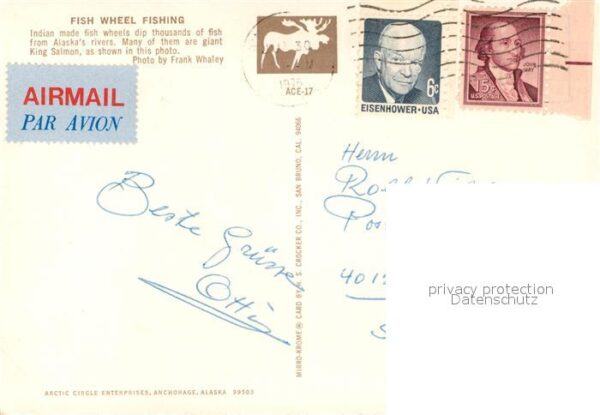 FISH WHEEL FISHING
Indian made fish wheels dip thousands of fish
from Alaska's rivers. Many of them are giant
King Salmon, as shown in this photo.
Photo by Frank Whaley
ACE-17
AIRMAIL
PAR AVION
6c
EISENHOWER·USA
15c
JOHN JAY
MIRRO-KROME® CARD BY H. S. CROCKER CO., INC., SAN BRUNO, CAL. 94066
Beste Grüsse
Herrn
privacy protection
Datenschutz
ARCTIC CIRCLE ENTERPRISES, ANCHORAGE, ALASKA 99503